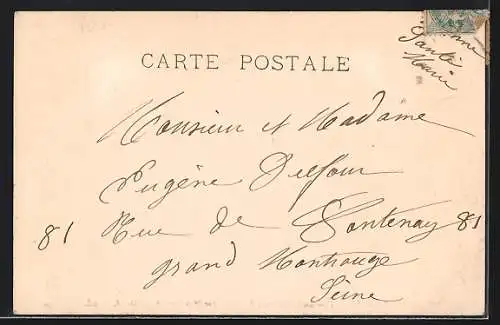 Bonne
Santé
Marie
CARTE POSTALE
Monsieur et Madame
Eugène Delfour
81 Rue de Fontenay 81
grand Montrouge
Seine